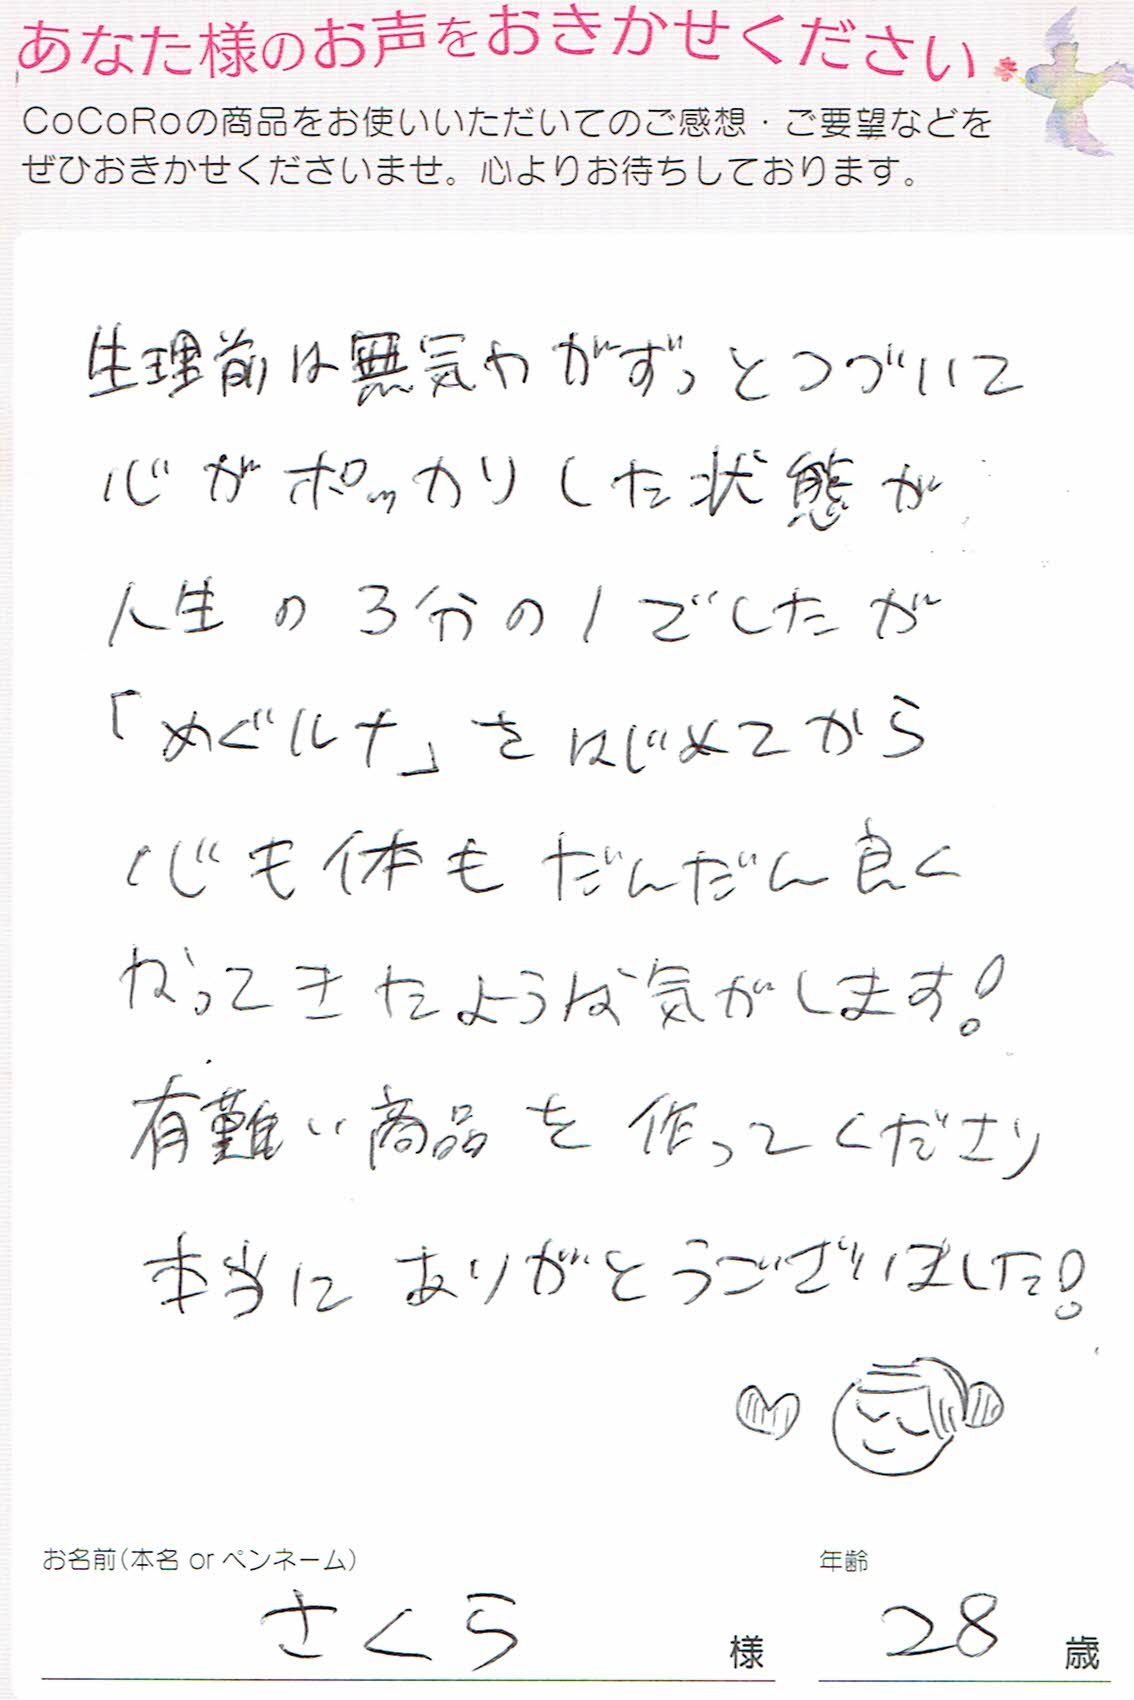 あなた様のお声をおきかせください
CoCoRoの商品をお使いいただいてのご感想・ご要望などを
ぜひおきかせくださいませ。心よりお待ちしております。
生理前は無気力がずっとつづいて
心がポッカリした状態が
人生の3分の1でしたが
「めぐルナ」をはじめてから
心も体もだんだん良く
なってきたような気がします!
有難い商品を作ってくださり
本当にありがとうございました!
お名前(本名 or ペンネーム) 年齢
さくら 様 28 歳